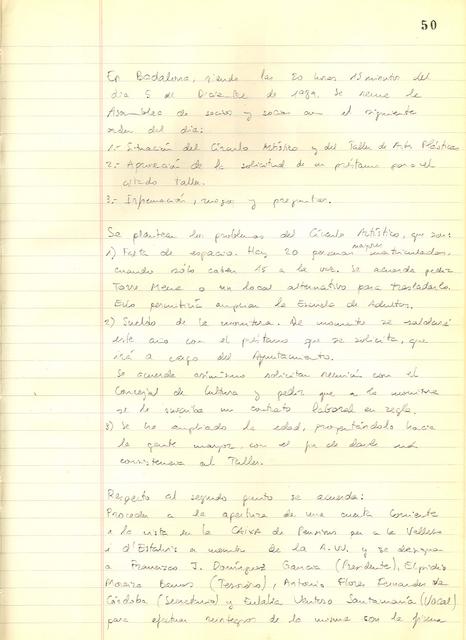 50
En Badalona, siendo las 20 horas 15 minutos del
día 5 de Diciembre de 1989. Se reune la
Asamblea de socios y socias con el siguiente
orden del día:
1.- Situación del Círculo Artístico y del Taller de Arts Plásticas
2.- Aprovación de la solicitud de un préstamo para el
citado Taller.
3.- Información, ruegos y preguntas.
Se plantean los problemas del Círculo Artístico, que son:
1) Falta de espacio. Hay 20 personas mayores matriculadas,
cuando sólo caben 15 a la vez. Se acuerda pedir
Torre Mena o un local alternativo para trasladarlo.
Ello permitiría ampliar la Escuela de Adultos.
2) Sueldo de la monitora. De momento se saldará
este año con el préstamo que se solicita, que
irá a cargo del Ayuntamiento.
Se acuerda asimismo solicitar reunión con el
Concejal de Cultura y pedir que a la monitora
se le suscriba un contrato laboral en regla.
3) Se ha ampliado la edad, proyectándolo hacia
la gente mayor, con el fin de darle más
consistencia al Taller.
Respecto al segundo punto se acuerda:
Proceder a la apertura de una cuenta corriente
a la vista en la CAIXA de Pensions per a la Vellesa
i d'Estalvis a nombre de la A.VV. y se designa
a Francisco J. Domínguez García (Presidente), Elpidio
Moreira (Tesorero), Antonio Flores Fernandez de
Córdoba (Secretario) y Eulalia Ventoso Santamaría (Vocal)
para efectuar reintegros de la misma con la firma